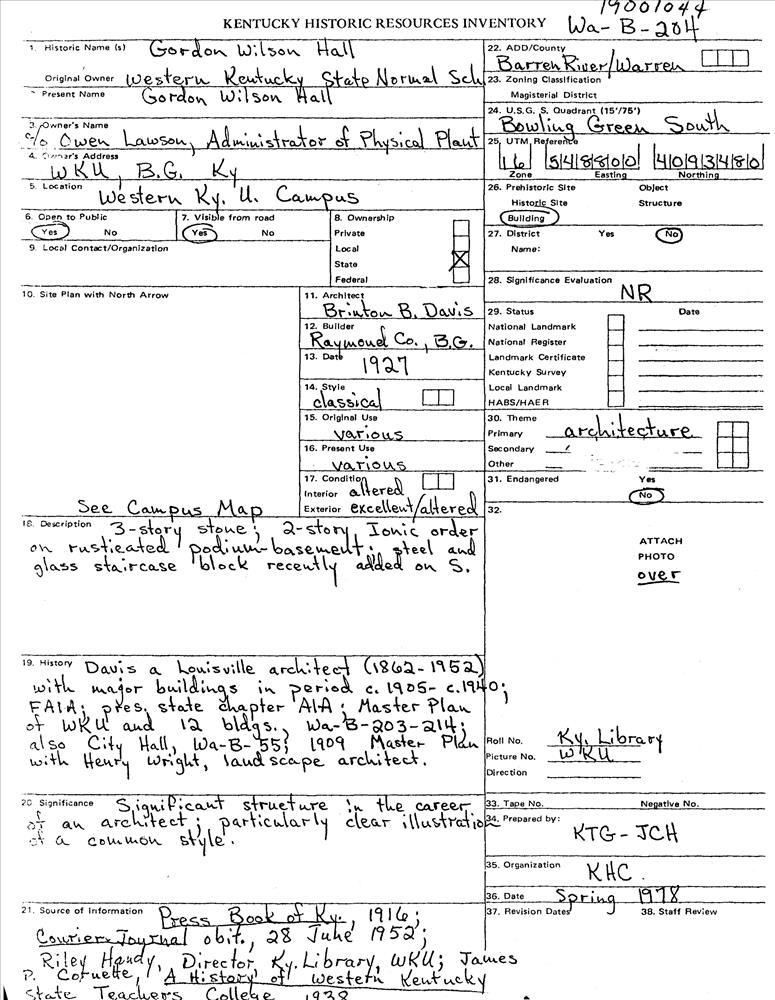 19001044
KENTUCKY HISTORIC RESOURCES INVENTORY Wa-B-204
1. Historic Name (s) Gordon Wilson Hall
Original Owner Western Kentucky State Normal Sch
Present Name Gordon Wilson Hall
3. Owner's Name
c/o Owen Lawson, Administrator of Physical Plant
4. Owner's Address
WKU, B.G. Ky
5. Location Western Ky. U. Campus
6. Open to Public
Yes No
7. Visible from road
Yes No
8. Ownership
Private
Local
State X
Federal
9. Local Contact/Organization
10. Site Plan with North Arrow
See Campus Map
11. Architect
Brinton B. Davis
12. Builder
Raymond Co., B.G.
13. Date 1927
14. Style
classical
15. Original Use
various
16. Present Use
various
17. Condition
Interior altered
Exterior excellent/altered
18. Description 3-story stone; 2-story Ionic order
on rusticated podium-basement; steel and
glass staircase block recently added on S.
19. History Davis a Louisville architect (1862-1952)
with major buildings in period c. 1905-c.1940;
FAIA; pres. state chapter AIA; Master Plan
of WKU and 12 bldgs., Wa-B-203-214;
also City Hall, Wa-B-55; 1909 Master Plan
with Henry Wright, landscape architect.
20 Significance Significant structure in the career
of an architect; particularly clear illustration
of a common style.
21. Source of Information Press Book of Ky., 1916;
Courier-Journal obit., 28 June 1952;
Riley Handy, Director, Ky. Library, WKU; James
P. Cornette, A History of Western Kentucky
State Teachers College 1938
22. ADD/County
Barren River/Warren
23. Zoning Classification
Magisterial District
24. U.S.G. S. Quadrant (15'/75')
Bowling Green South
25. UTM Reference
16 548800 4093480
Zone Easting Northing
26. Prehistoric Site Object
Historic Site Structure
Building
27. District Yes No
Name:
28. Significance Evaluation
NR
29. Status Date
National Landmark
National Register
Landmark Certificate
Kentucky Survey
Local Landmark
HABS/HAER
30. Theme
Primary architecture
Secondary
Other
31. Endangered Yes
No
32.
ATTACH
PHOTO
over
Roll No. Ky. Library
Picture No. WKU
Direction
33. Tape No. Negative No.
34. Prepared by:
KTG-JCH
35. Organization KHC
36. Date Spring 1978
37. Revision Dates 38. Staff Review